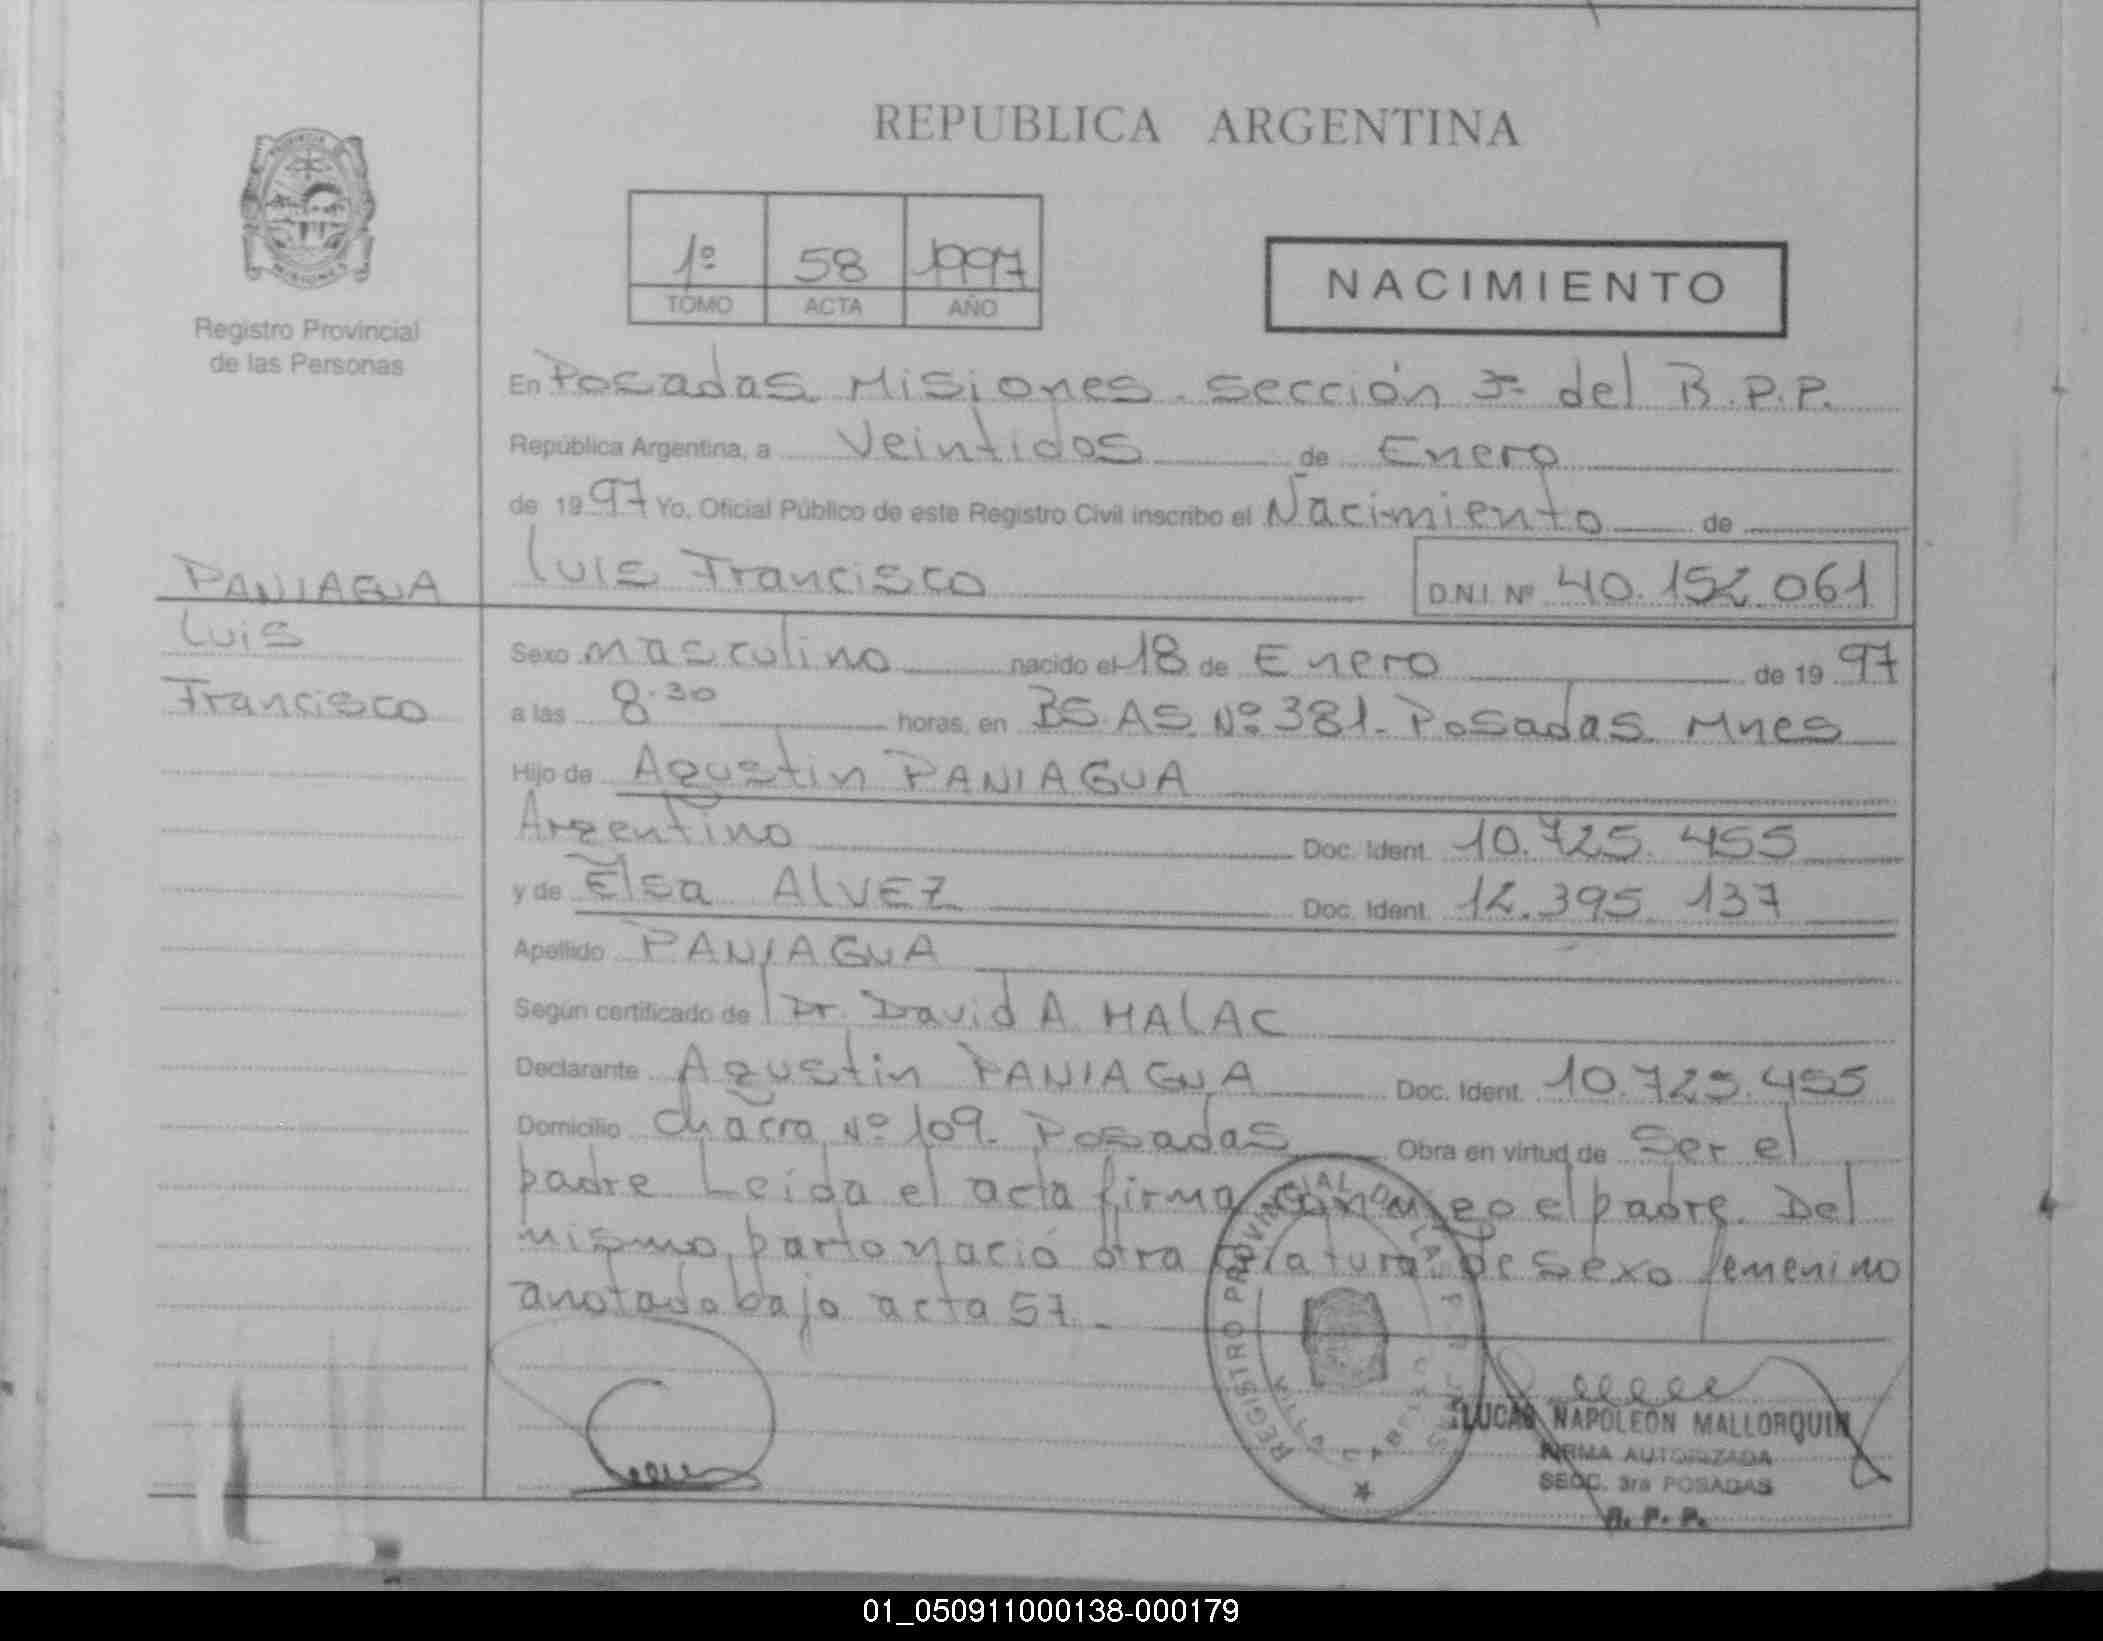 REPUBLICA ARGENTINA
1º 58 1997
TOMO ACTA AÑO
NACIMIENTO
Registro Provincial
de las Personas
En Posadas Misiones. Sección 3ª del R.P.P.
República Argentina, a Veintidos de Enero
de 1997 Yo, Oficial Público de este Registro Civil inscribo el Nacimiento de
Luis Francisco D.N.I. Nº 40.152.061
PANIAGUA
Luis
Francisco
Sexo Masculino nacido el 18 de Enero de 1997
a las 8.30 horas, en BS.AS. Nº 381. Posadas. Mnes
Hijo de Agustin PANIAGUA
Argentino Doc. Ident. 10.725.455
y de Elsa ALVEZ Doc. Ident. 12.395.137
Apellido PANIAGUA
Según certificado de Dr. David A. HALAC
Declarante Agustin PANIAGUA Doc. Ident. 10.725.455
Domicilio Chacra Nº 109. Posadas Obra en virtud de Ser el
padre Leida el acta firma conmigo el padre. Del
mismo parto nació otra criatura de sexo femenino
anotado bajo acta 57.-
REGISTRO PROVINCIAL DE LAS PERSONAS
LUCAS NAPOLEON MALLORQUIN
FIRMA AUTORIZADA
SECC. 3ra POSADAS
R. P. P.
01_050911000138-000179